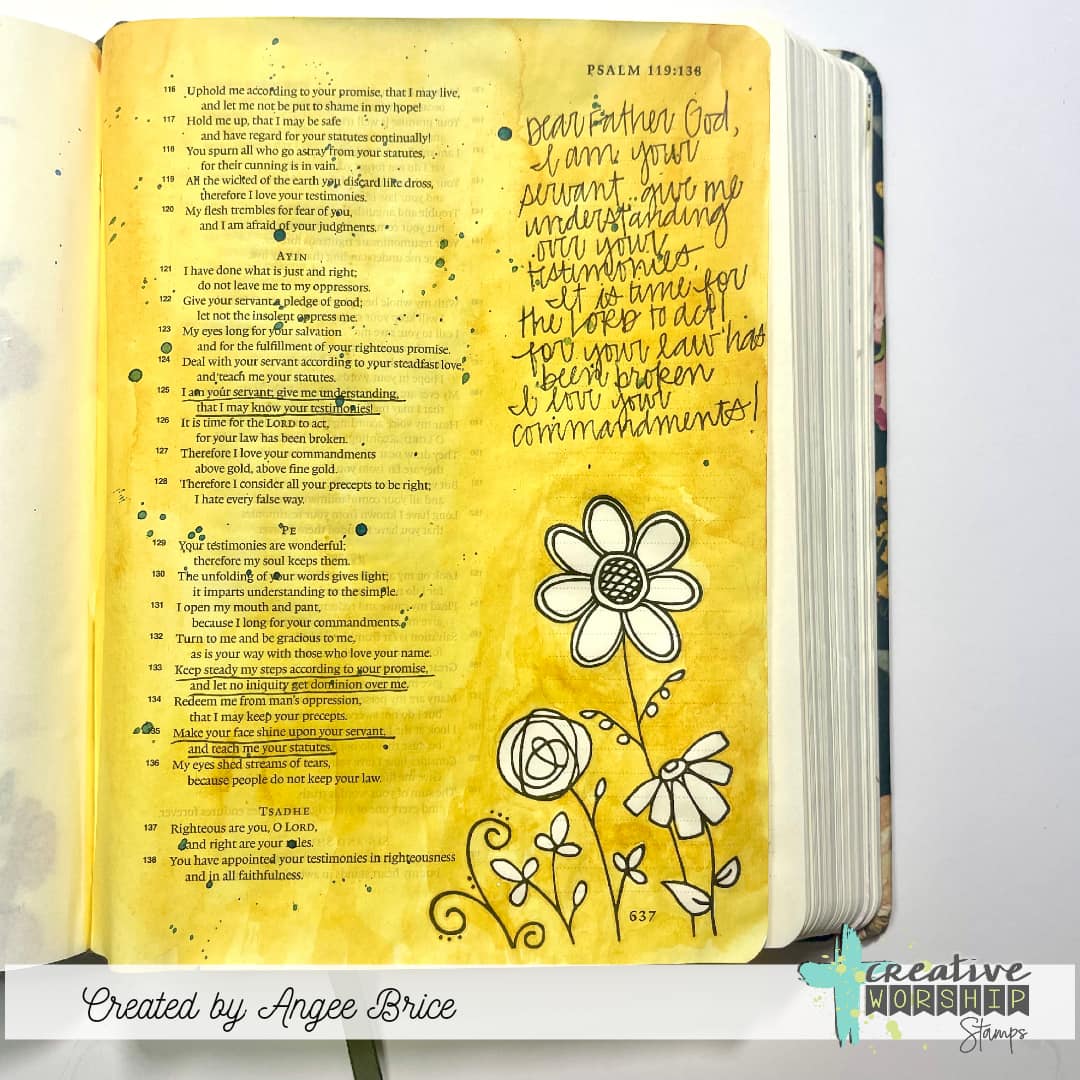 PSALM 119:138
116 Uphold me according to your promise, that I may live,
and let me not be put to shame in my hope!
117 Hold me up, that I may be safe
and have regard for your statutes continually!
118 You spurn all who go astray from your statutes,
for their cunning is in vain.
119 All the wicked of the earth you discard like dross,
therefore I love your testimonies.
120 My flesh trembles for fear of you,
and I am afraid of your judgments.
AYIN
121 I have done what is just and right;
do not leave me to my oppressors.
122 Give your servant a pledge of good;
let not the insolent oppress me.
123 My eyes long for your salvation
and for the fulfillment of your righteous promise.
124 Deal with your servant according to your steadfast love,
and teach me your statutes.
125 I am your servant; give me understanding,
that I may know your testimonies!
126 It is time for the LORD to act,
for your law has been broken.
127 Therefore I love your commandments
above gold, above fine gold.
128 Therefore I consider all your precepts to be right;
I hate every false way.
PE
129 Your testimonies are wonderful;
therefore my soul keeps them.
130 The unfolding of your words gives light;
it imparts understanding to the simple.
131 I open my mouth and pant,
because I long for your commandments.
132 Turn to me and be gracious to me,
as is your way with those who love your name.
133 Keep steady my steps according to your promise,
and let no iniquity get dominion over me.
134 Redeem me from man's oppression,
that I may keep your precepts.
135 Make your face shine upon your servant,
and teach me your statutes.
136 My eyes shed streams of tears,
because people do not keep your law.
TSADHE
137 Righteous are you, O LORD,
and right are your rules.
138 You have appointed your testimonies in righteousness
and in all faithfulness.
Dear Father God,
I am your
servant give me
understanding
over your
testimonies.
It is time for
the LORD to act!
for your law has
been broken
I love your
commandments!
637
Created by Angee Brice
creative
WORSHIP
Stamps